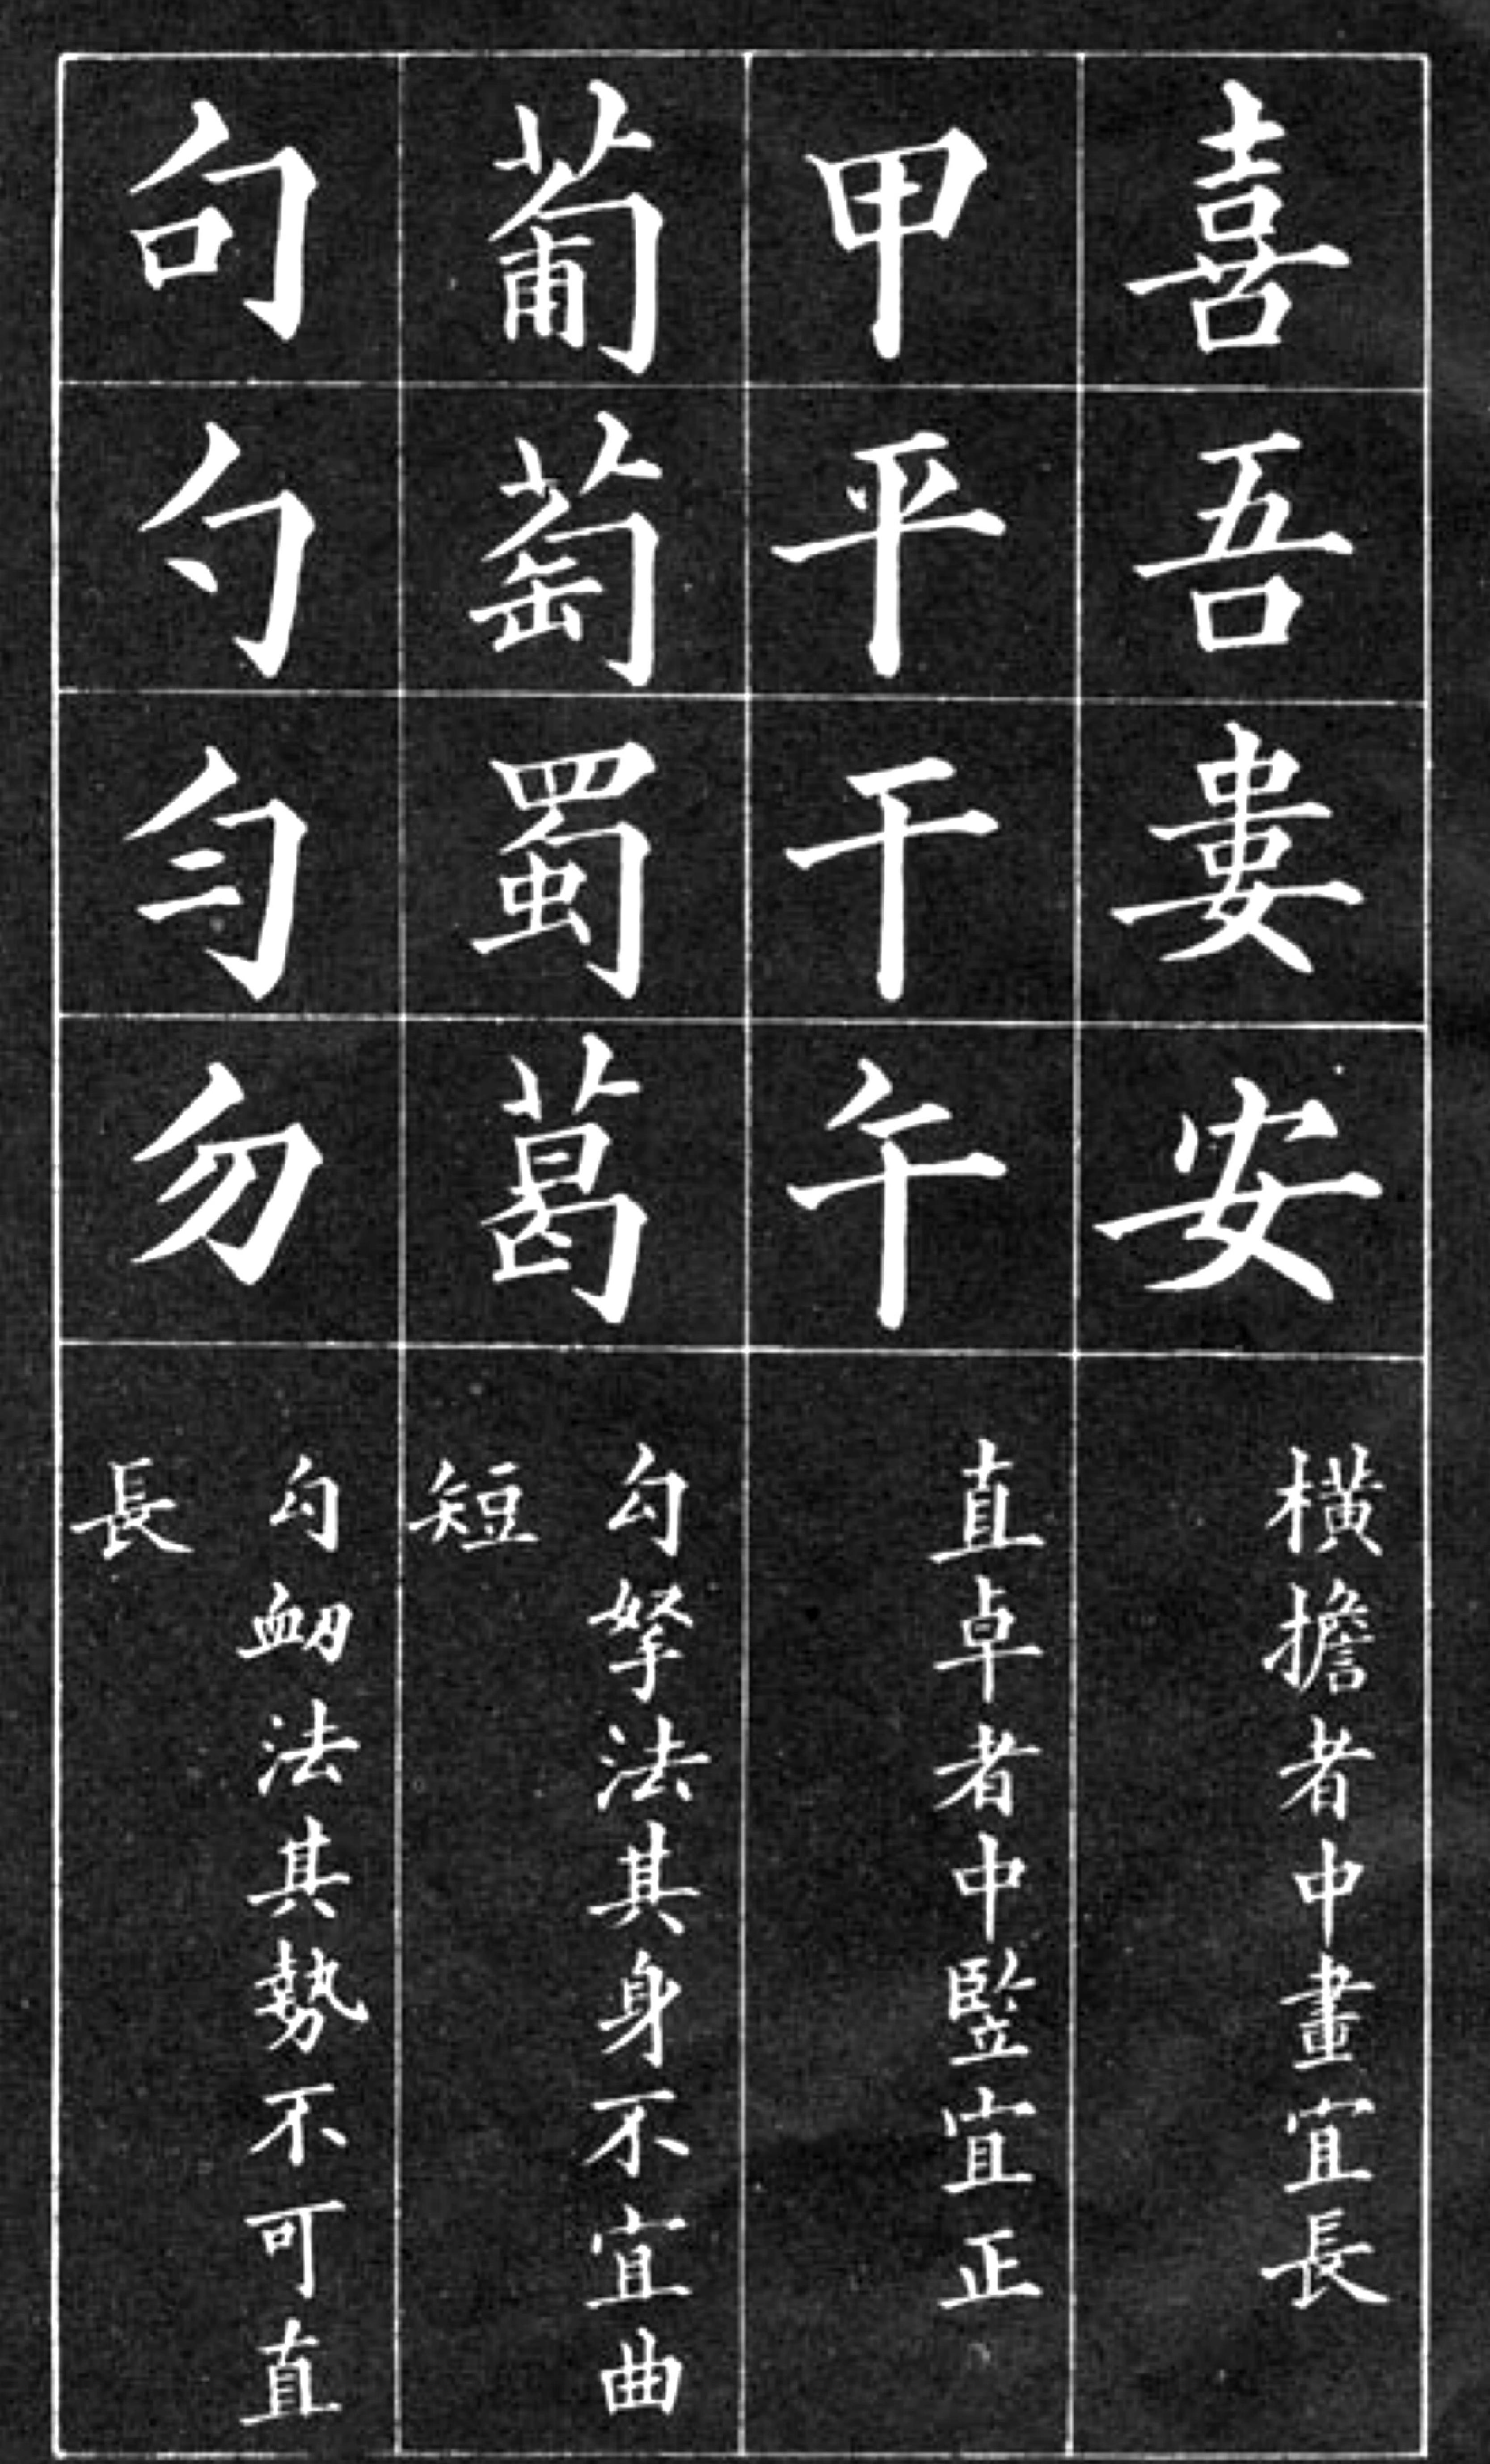 喜吾婁安
橫擔者中畫宜長
甲平干午
直卓者中竪宜正
葡萄蜀葛
勾拏法其身不宜曲
短
句勺匀勿
勾衂法其勢不可直
長